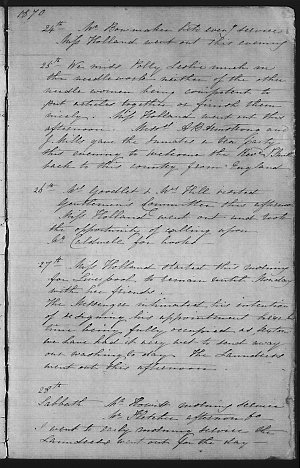 1870
24th Mr Bowmaker late eveng service
Miss Holland went out this evening
25th We miss Polly Leslie much in
the needlework neither of the other
needle women being competent to
put articles together or finish them
nicely. Miss Holland went out this
afternoon. Messrs Armstrong and
Mills gave the Inmates a tea party
this evening to welcome the Revd
back to this country from England
26th Mrs Goodlet & Mrs Hill waited
Gentlemen's Committee this afternoon
Miss Holland went out and took
the opportunity of calling upon
Mr Caldwell for books
27th Miss Holland started this morning
for Liverpool to remain until Monday
with her friends.
The Messenger intimated his intention
of resigning his appointment his
time being fully occupied as
we have had it very wet to send away
our washing to day. The Laundress
went out this afternoon
28th
Sabbath Mr Howitt morning service
Mr Fletcher afternoon Do
I went to early morning service the
Laundress went out for the day